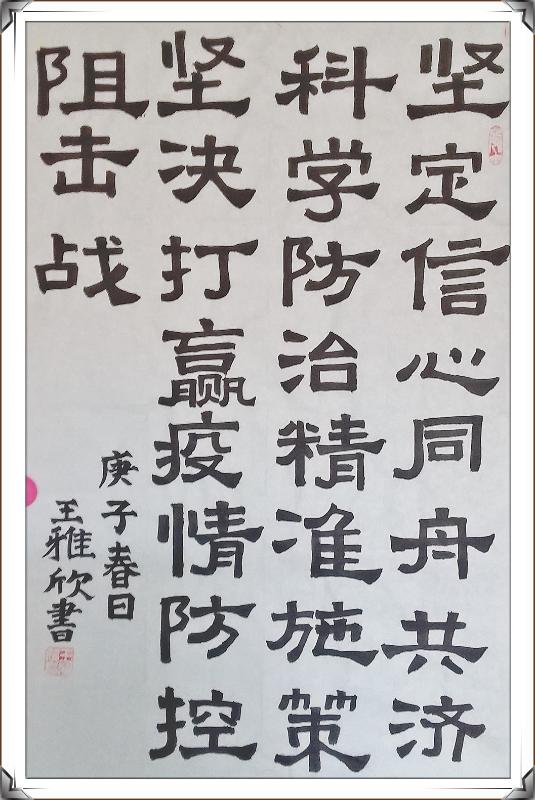 坚定信心同舟共济
科学防治精准施策
坚决打赢疫情防控
阻击战
庚子春日
王雅欣書